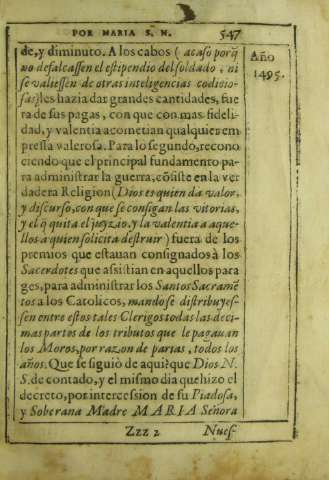 POR MARIA S. N. 547
Año
1495.
de, y diminuto. A los cabos ( acaso porq̃
no defalcassen el estipendio del soldado, ni
se valiessen de otras inteligencias codicio-
sas) les hazia dar grandes cantidades, fue
ra de sus pagas, con que con mas fideli-
dad, y valentia acometian qualquier em
pressa valerosa. Para lo segundo, recono
ciendo que el principal fundamento pa-
ra administrar la guerra, cõsiste en la ver
dadera Religion (Dios es quien da valor,
y discurso, con que se consigan las vitorias,
y el q̃ quita el juyzio, y la valentia a aque-
llos a quien solicita destruir) fuera de los
premios que estauan consignados à los
Sacerdotes que assistian en aquellos para
ges, para administrar los Santos Sacramẽ
tos a los Catolicos, mandò se distribuyes-
sen entre estos tales Clerigos todas las deci-
mas partes de los tributos que le pagauan
los Moros, por razon de parias, todos los
años. Que se siguiò de aqui? que Dios N.
S. de contado, y el mismo dia que hizo el
decreto, por intercession de su Piadosa,
y Soberana Madre MARIA Señora
Zzz 2 Nues-